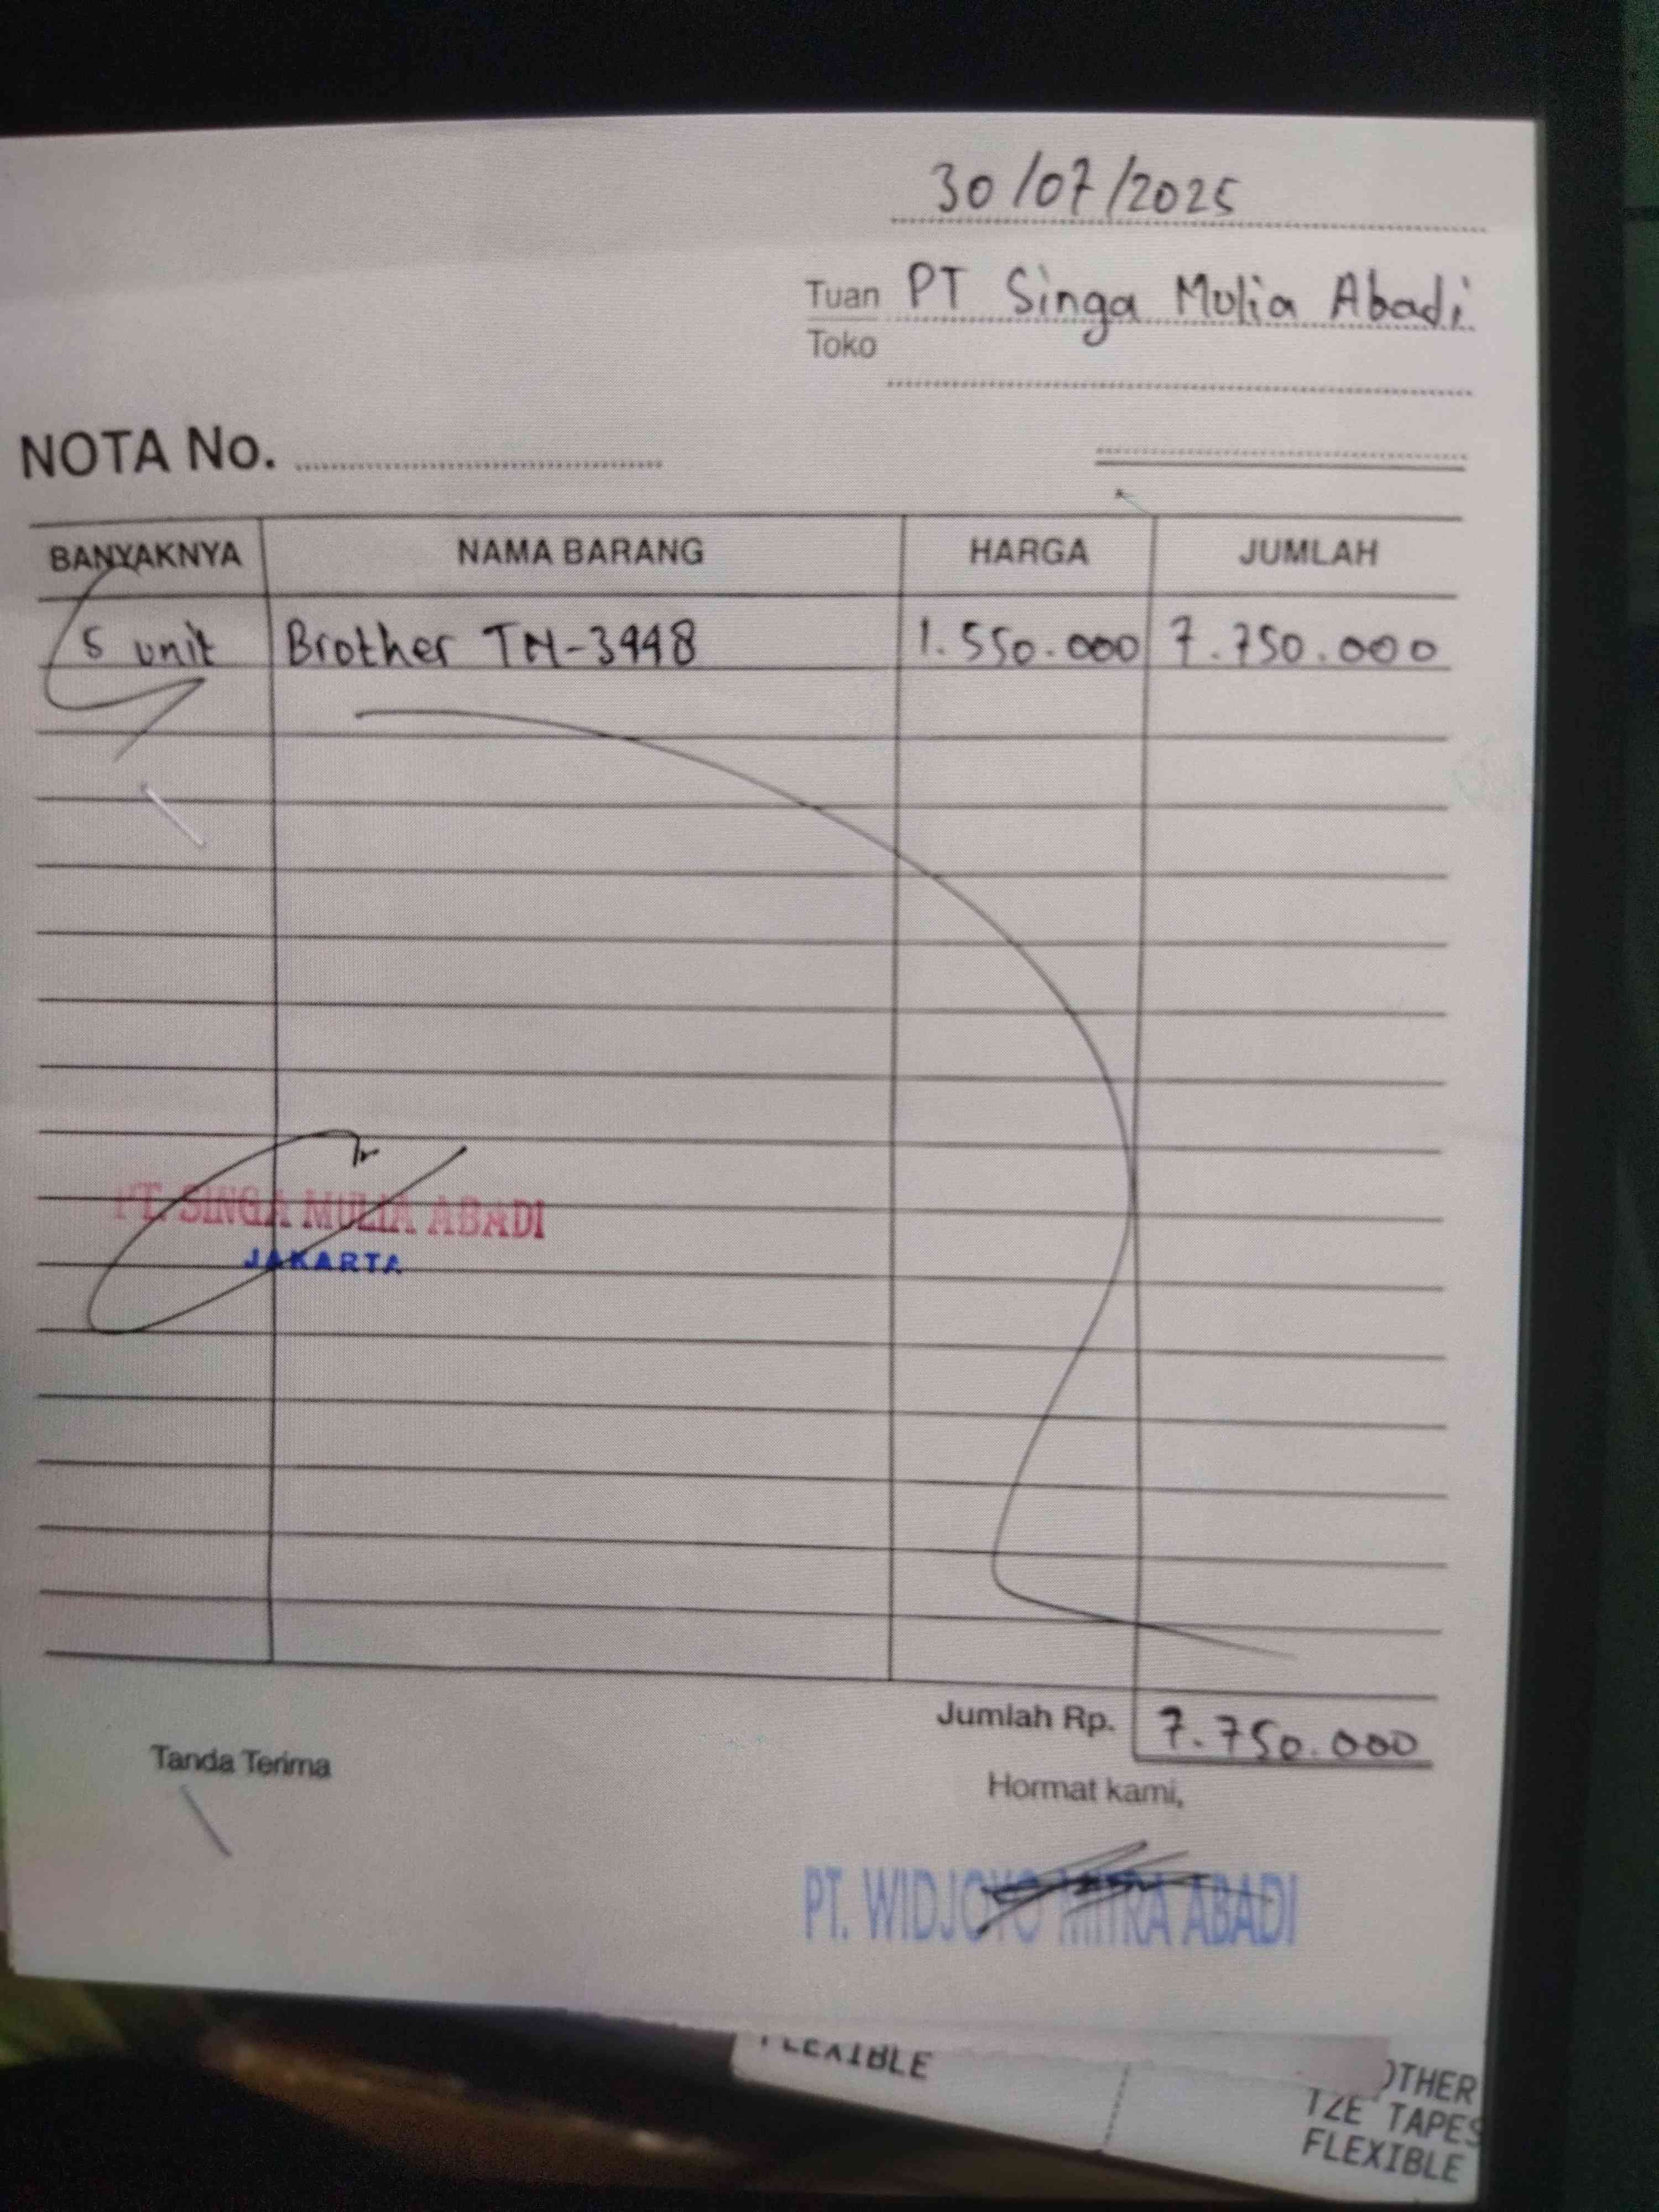 30/07/2025
Tuan PT Singa Mulia Abadi
Toko
NOTA No.
BANYAKNYA NAMA BARANG HARGA JUMLAH
5 unit Brother TN-3448 1.550.000 7.750.000
PT. SINGA MULIA ABADI
JAKARTA
Jumlah Rp. 7.750.000
Tanda Terima
Hormat kami,
PT. WIDJOYO MITRA ABADI
FLEXIBLE
OTHER
TZE TAPES
FLEXIBLE